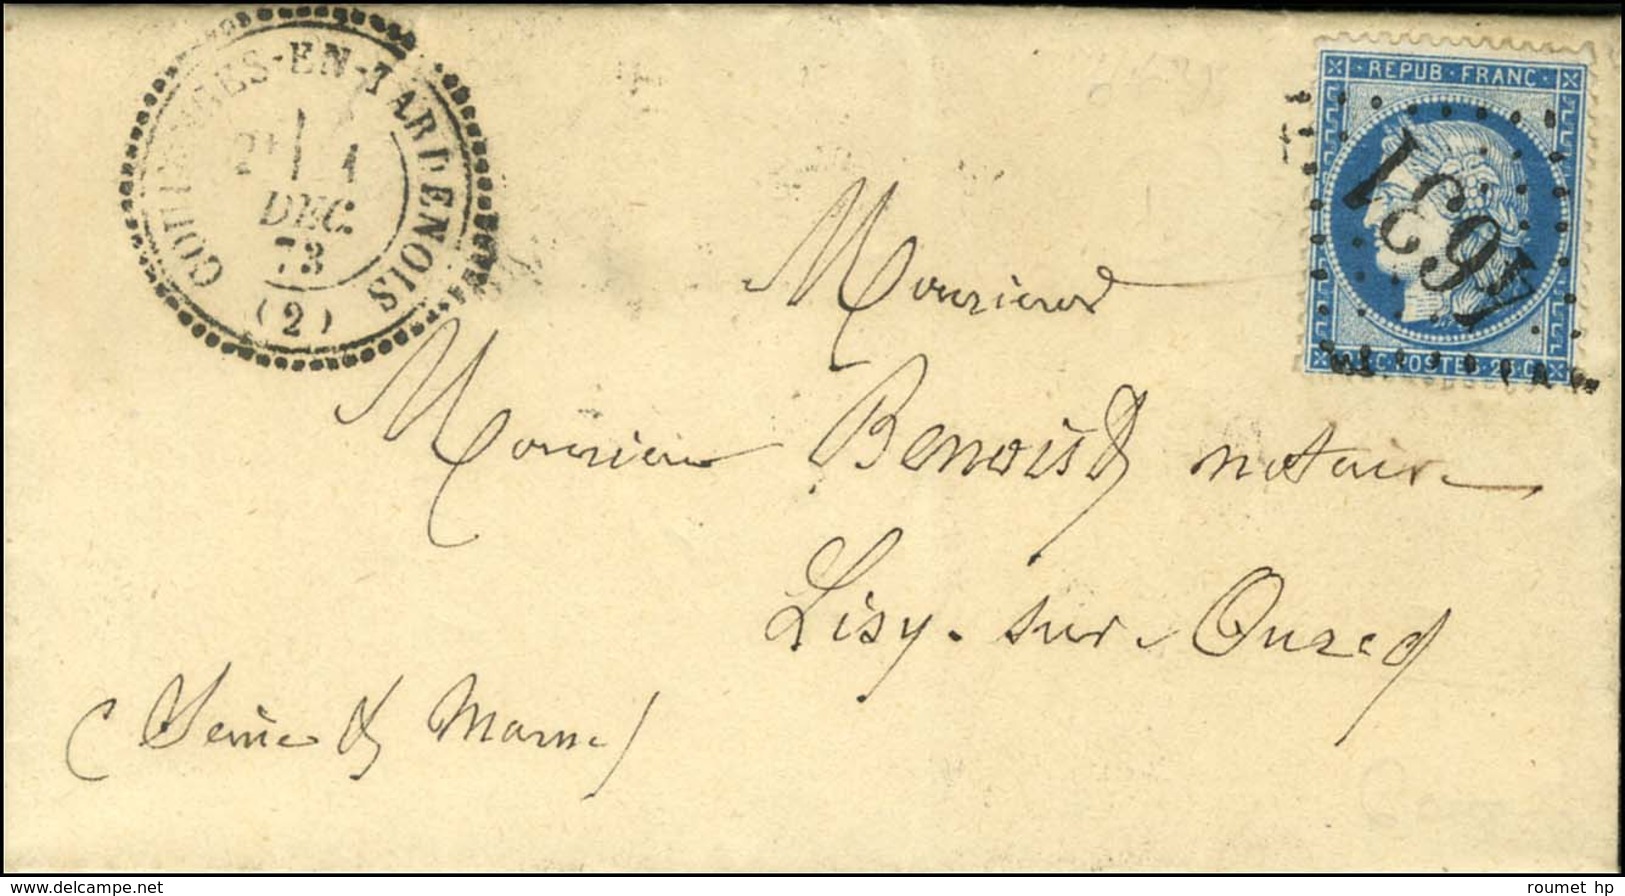 COULONGES-EN-TARDENOIS
2E 1
DEC.
73
(2)
REPUB · FRANC
4631
POSTES
Monsieur
Monsieur Benoist notaire
Lisy-sur-Ourcq
(Seine & Marne)
roumet hp